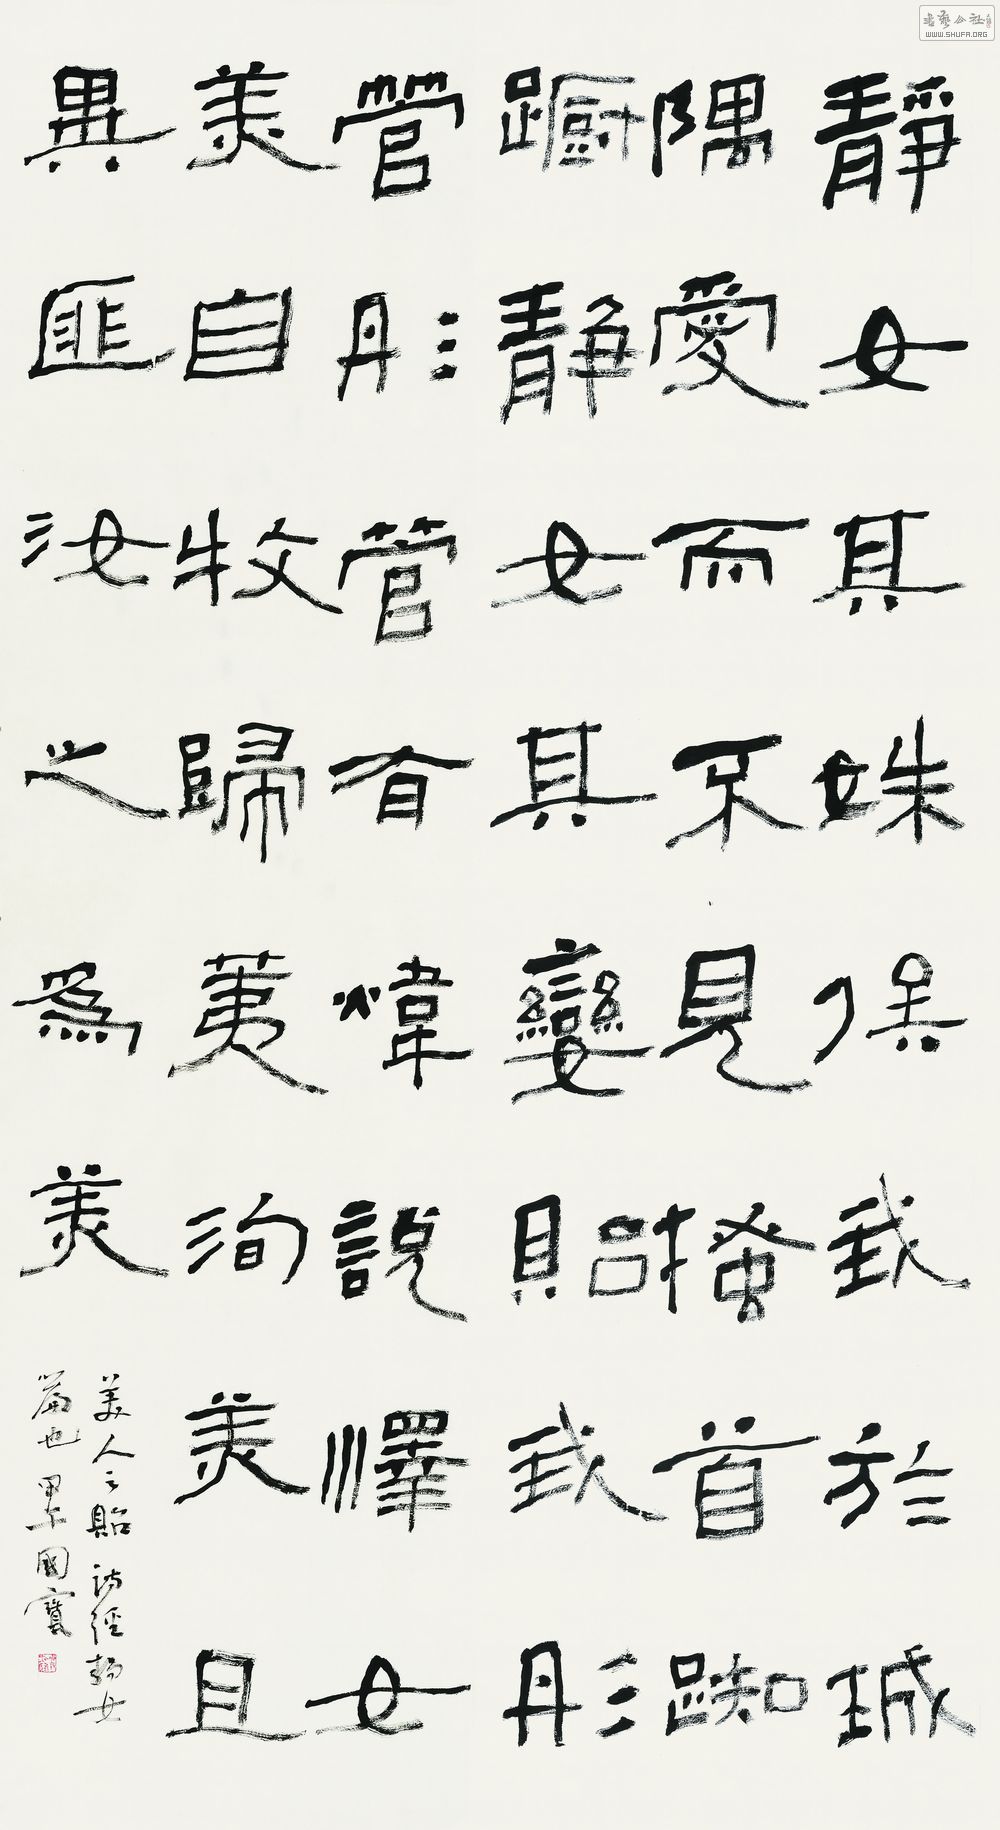 書藝公社
WWW.SHUFA.ORG
靜女其姝俟我於城
隅愛而不見搔首踟
蹰靜女其孌貽我彤
管彤管有煒說懌女
美自牧歸荑洵美且
異匪汝之為美
美人之貽 詩經靜女
篇也 國寶